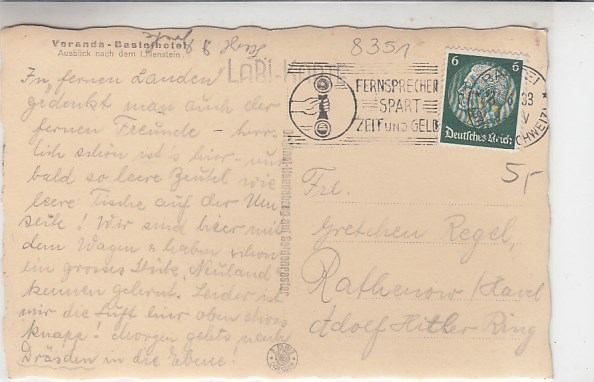 Veranda-Basteihotel
Ausblick nach dem Lilienstein
8351
LABI-KARTE
FERNSPRECHEN
SPART
ZEIT UND GELD
6 6
Deutsches Reich
33
5,-
In fernen Landen
gedenkt man auch der
fernen Freunde - herr-
lich schön ist's hier - nur
bald so leere Beutel wie
leere Tische auf der Um-
seite! Wir sind hier mit
dem Wagen & haben schon
ein grosses Stück „Neuland"
kennen gelernt. Leider ist
mir die Luft hier oben etwas
knapp! Morgen gehts nach
Dräsden in die Ebene!
Frl.
Gretchen Regel,
Rathenow/Havel
Adolf Hitler Ring